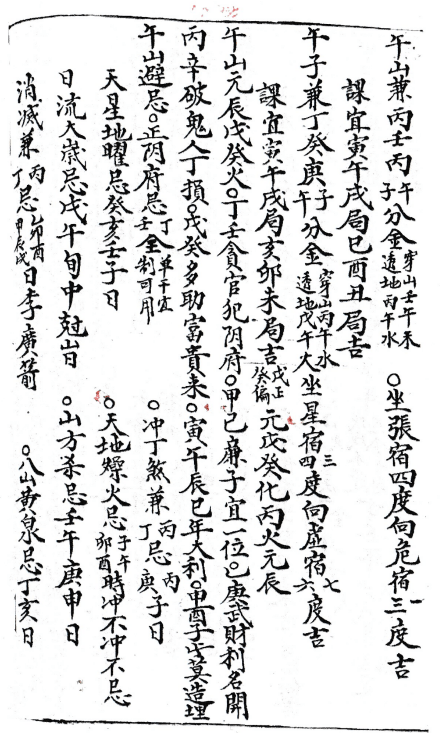 午山兼丙壬丙午丙子分金穿山壬午木透地丙午水○坐張宿四度向危宿三度吉
課宜寅午戌局巳酉丑局吉
午子兼丁癸庚子庚午分金穿山丙午水透地戊午火坐星宿四三度向虛宿六七度吉
課宜寅午戌局亥卯未局吉戊正癸偏元戊癸化丙火元辰
午山元辰戊癸火○丁壬貪官犯陰府○甲己廉子宜一位○乙庚武財利名開
丙辛破鬼人丁損○戊癸多助富貴来○寅午辰巳年大利○甲酉子出莫造埋
午山避忌○正陰府忌丁壬全單干宜制可用 ○冲丁煞兼丙丁忌丙庚子日
天星地曜忌癸亥壬子日 ○天地燥火忌子午卯酉時冲不冲不忌
日流太歲忌戌午旬中尅山日 ○山方殺忌壬午庚申日
消滅兼丙丁忌乙卯酉甲辰戌日李廣箭 ○八山黄泉忌丁亥日